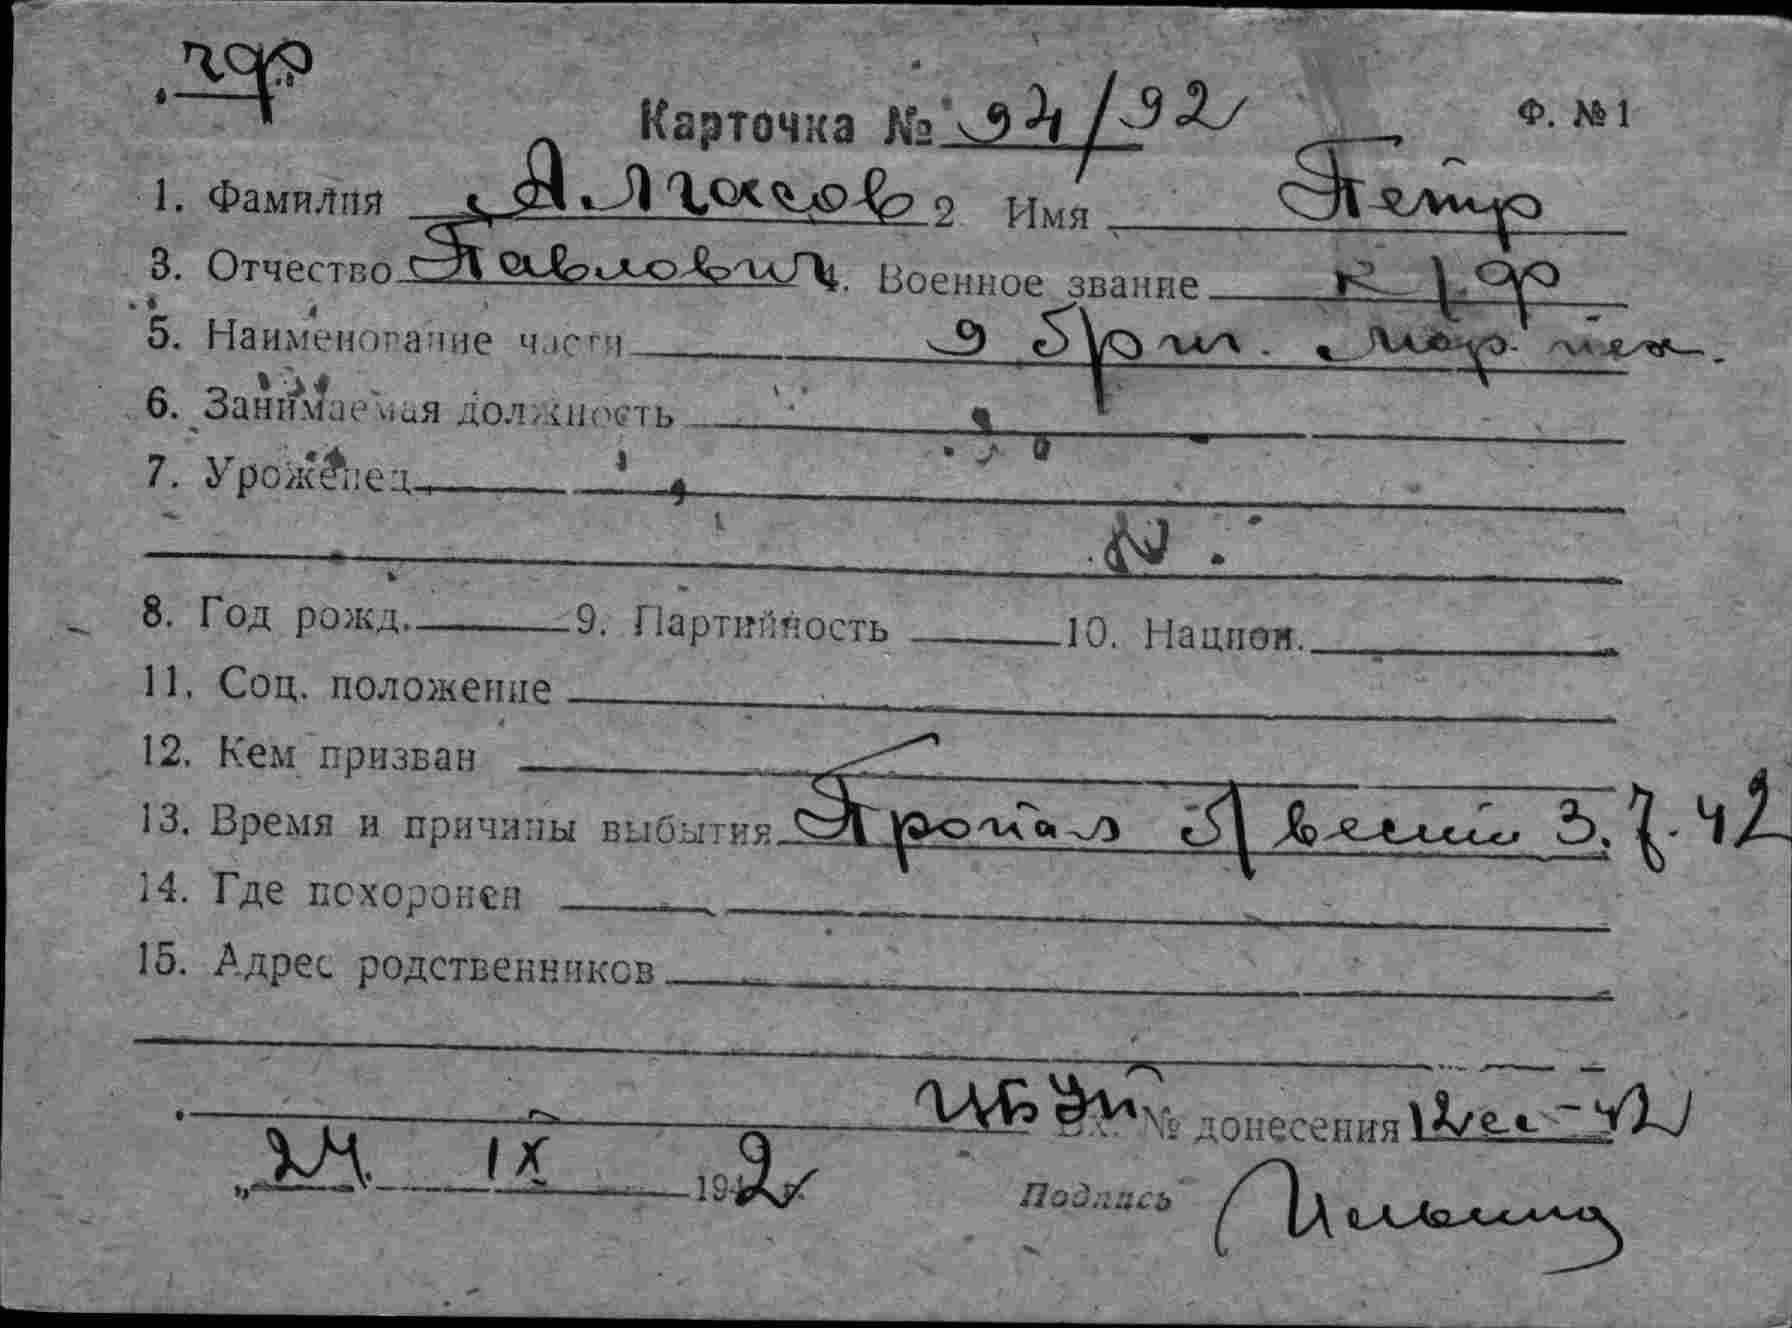 чф
Карточка № 94/92 Ф. № 1
1. Фамилия Алмасов 2 Имя Петр
3. Отчество Павлович 4. Военное звание к/ф
5. Наименование части 9 бриг. мор. пех.
6. Занимаемая должность
7. Уроженец
8. Год рожд. 9. Партийность 10. Национ.
11. Соц. положение
12. Кем призван
13. Время и причины выбытия Пропал б/вести 3.7.42
14. Где похоронен
15. Адрес родственников
Вх. № донесения
„24 IX 1942 г.
Подпись